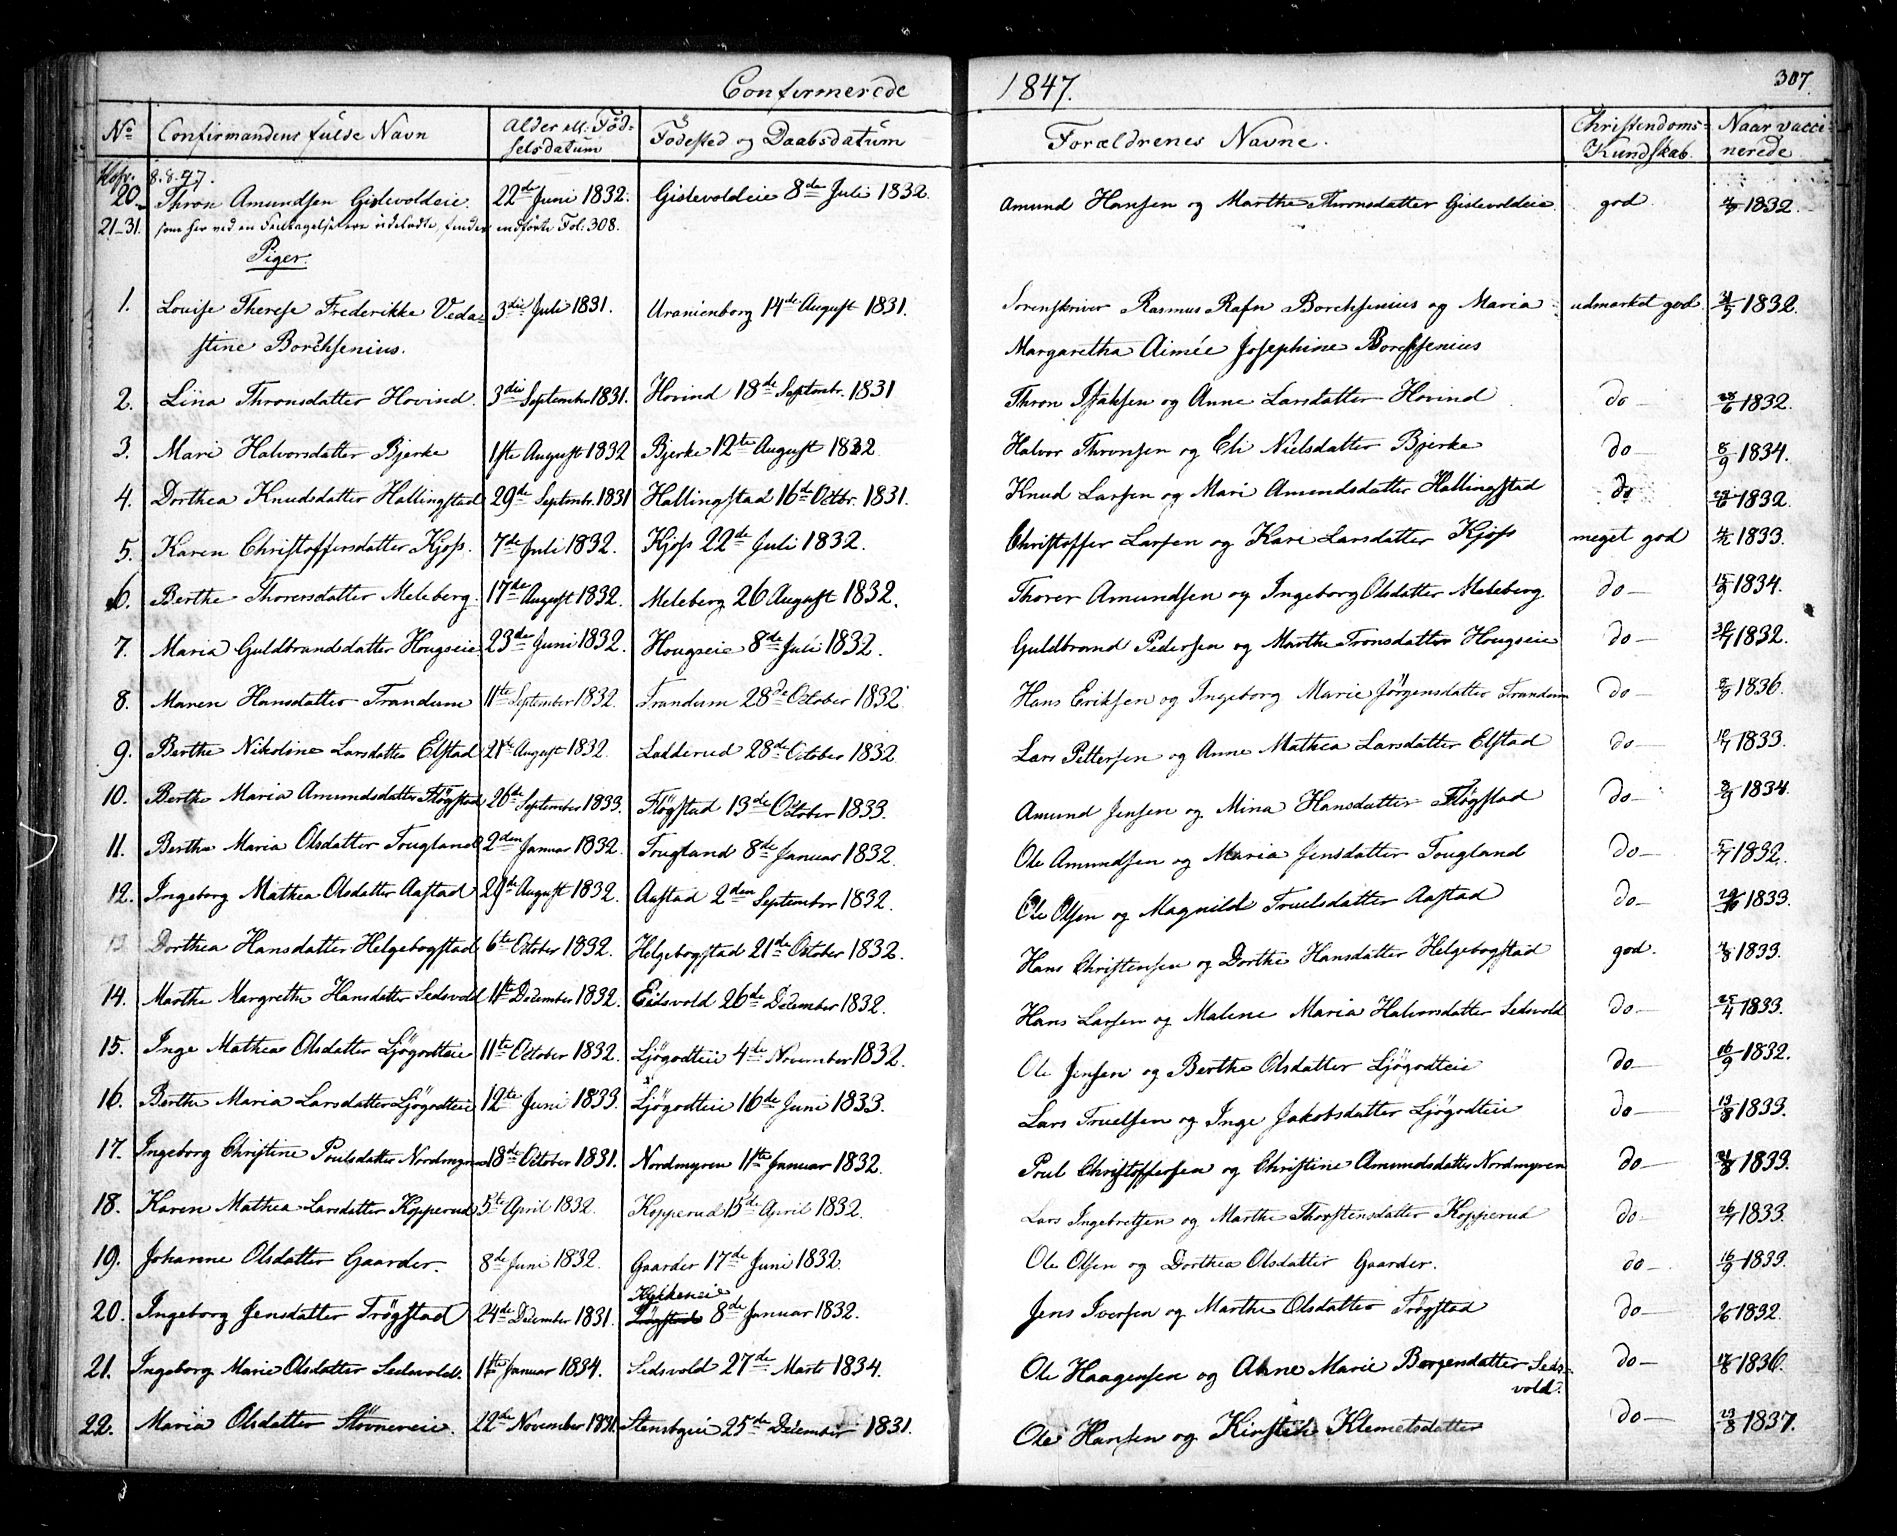 Confirmerede 1847. 307.
No Confirmandens fulde Navn Alder ell. Fød- Fødested og Daabsdatum Forældrenes Navne. Christendoms- Naar vacci-
selsdatum Kundskab. nerede
8.8.47.
20. Thron Amundsen Gislevoldeie. 22de Juni 1832. Gislevoldeie 8de Juli 1832. Amund Hansen og Marthe Thronsdatter Gislevoldeie god 1832.
21-31. som her ved en Feiltagelse ere udeladte, findes indførte Fol. 308.
Piger.
1. Louise Therese Frederikke Veda- 3die Juli 1831. Uranienborg 14de August 1831. Sorenskriver Rasmus Rafn Borchsenius og Maria udmærket god. 1832.
stine Borchsenius. Margaretha Aimée Josephine Borchsenius
2. Lina Thronsdatter Hovind. 3die September 1831. Hovind 18de Septembr. 1831 Thron Isaksen og Anne Larsdatter Hovind do 28/6 1832.
3. Mari Halvorsdatter Bjerke 1ste August 1832 Bjerke 12te August 1832 Halvor Thronsen og Eli Nielsdatter Bjerke do 8/9 1834.
4. Dorthea Knudsdatter Hallingstad 29de Septembr. 1831 Hallingstad 16de Octbr. 1831. Knud Larsen og Mari Amundsdatter Hallingstad do 1832.
5. Karen Christoffersdatter Kjøss. 7de Juli 1832. Kjøss 22de Juli 1832. Christoffer Larsen og Kari Larsdatter Kjøss meget god 1833.
6. Berthe Thorersdatter Meleberg. 17de August 1832. Meleberg 26 August 1832. Thorer Amundsen og Ingeborg Olsdatter Meleberg do 15/9 1834.
7. Maria Guldbrandsdatter Hougseie 23de Juni 1832. Hougseie 8de Juli 1832. Guldbrand Pedersen og Marthe Tronsdatter Hougseie do 1832.
8. Maren Hansdatter Trandum 11te September 1832. Trandum 28de October 1832. Hans Eriksen og Ingeborg Marie Jørgensdatter Trandum do 1836.
9. Berthe Nikoline Larsdatter Elstad 21de August 1832. Ladderud 28de October 1832. Lars Pettersen og Anne Mathea Larsdatter Elstad do 1833.
10. Berthe Maria Amundsdatter Fløgstad 26de September 1833. Fløgstad 13de October 1833. Amund Jensen og Mina Hansdatter Fløgstad do 1834.
11. Berthe Maria Olsdatter Tougland 2den Januar 1832. Tougland 8de Januar 1832. Ole Amundsen og Maria Jensdatter Tougland do 5/7 1832.
12. Ingeborg Mathea Olsdatter Aastad 29de August 1832. Aastad 2den September 1832. Ole Olsen og Magnild Truelsdatter Aastad do 1833.
13. Dorthea Hansdatter Helgebogstad 6te October 1832. Helgebogstad 21de October 1832. Hans Christensen og Dorthe Hansdatter Helgebogstad god. 1833.
14. Marthe Margrethe Hansdatter Sedsvold 11te December 1832. Eidsvold 26de December 1832. Hans Larsen og Malene Maria Halvorsdatter Sedsvold do 25/4 1833.
15. Inge Mathea Olsdatter Ljøgodteie 11te October 1832. Ljøgodteie 4de November 1832. Ole Jensen og Berthe Olsdatter Ljøgodteie do 16/9 1832.
16. Berthe Maria Larsdatter Ljøgodteie 12te Juni 1833. Ljøgodteie 16de Juni 1833. Lars Truelsen og Inge Jakobsdatter Ljøgodteie do 13/8 1833.
17. Ingeborg Christine Poulsdatter Nordmyren 18de October 1831. Nordmyren 11te Januar 1832. Poul Christoffersen og Christine Amundsdatter Nordmyren do 1833.
18. Karen Mathea Larsdatter Kopperud 5te April 1832. Kopperud 15de April 1832. Lars Ingebretsen og Marthe Thorstensdatter Kopperud do 26/7 1833.
19. Johanne Olsdatter Gaarder. 8de Juni 1832. Gaarder 17de Juni 1832. Ole Olsen og Dorthea Olsdatter Gaarder. do 16/9 1833.
20. Ingeborg Jensdatter Trøgstad 24de December 1831. 8de Januar 1832. Jens Iversen og Marthe Olsdatter Trøgstad do 1832.
21. Ingeborg Marie Olsdatter Sedsvold. Januar 1834. Sedsvold 27de Marts 1834. Ole Haagensen og Anne Marie Borgersdatter Seds- do 1836.
vold.
22. Maria Olsdatter Støvneeie. 22de November 1831. 25de December 1831. Ole Hansen og Kirstine Klemetsdatter do 23/8 1837.